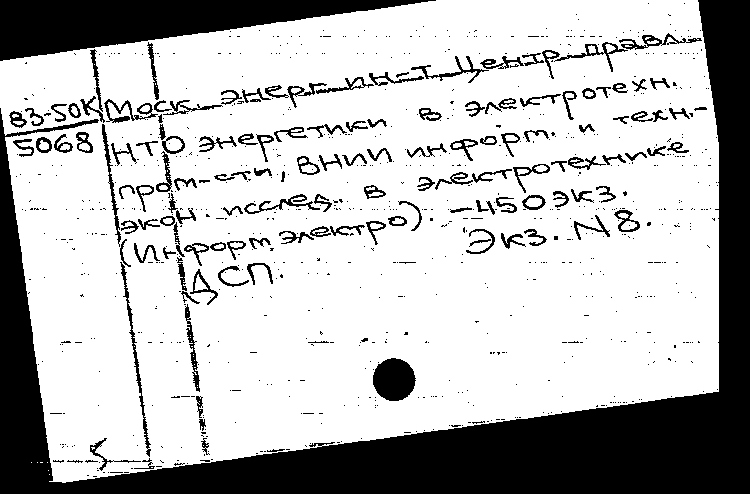 83-50К Моск. энерг. ин-т, Центр. правл.
5068 НТО энергетики в электротехн.
пром-сти, ВНИИ информ. и техн.-
экон. исслед. в электротехнике
(Информэлектро). -450экз.
ДСП. Экз. N8.
5